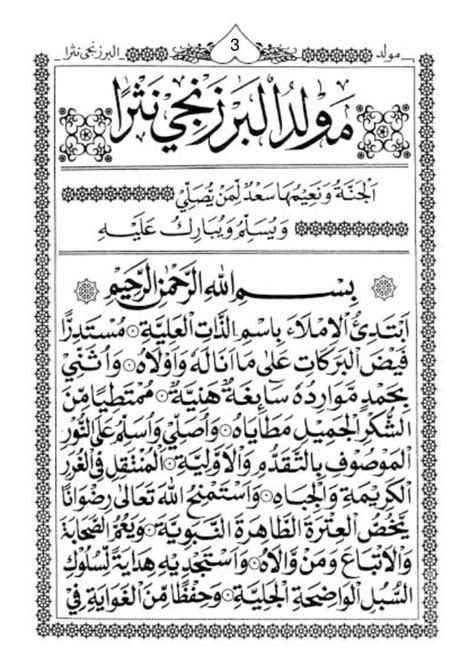 مولد
3
البرزنجي نثرا
مَوْلِدُ الْبَرْزَنْجِيْ نَثْرًا
اَلْجَنَّةُ وَنَعِيْمُهَا سَعْدٌ لِمَنْ يُصَلِّيْ
وَيُسَلِّمُ وَيُبَارِكُ عَلَيْهِ
بِسْمِ اللهِ الرَّحْمٰنِ الرَّحِيْمِ
اَبْتَدِئُ الْاِمْلَاءَ بِاسْمِ الذَّاتِ الْعَلِيَّةِ۞ مُسْتَدِرًّا
فَيْضَ الْبَرَكَاتِ عَلٰى مَا اَنَالَهُ وَاَوْلَاهُ۞ وَاُثَنِّيْ
بِحَمْدٍ مَوَارِدُهُ سَائِغَةٌ هَنِيَّةٌ۞ مُمْتَطِيًا مِنَ
الشُّكْرِ الْجَمِيْلِ مَطَايَاهُ۞ وَاُصَلِّيْ وَاُسَلِّمُ عَلَى النُّوْرِ
الْمَوْصُوْفِ بِالتَّقَدُّمِ وَالْاَوَّلِيَّةِ۞ اَلْمُنْتَقِلِ فِي الْغُرَرِ
الْكَرِيْمَةِ وَالْجِبَاهِ۞ وَاَسْتَمْنِحُ اللهَ تَعَالٰى رِضْوَانًا
يَخُصُّ الْعِتْرَةَ الطَّاهِرَةَ النَّبَوِيَّةَ۞ وَيَعُمُّ الصَّحَابَةَ
وَالْاَتْبَاعَ وَمَنْ وَالَاهُ۞ وَاَسْتَجْدِيْهِ هِدَايَةً لِسُلُوْكِ
السُّبُلِ الْوَاضِحَةِ الْجَلِيَّةِ۞ وَحِفْظًا مِنَ الْغَوَايَةِ فِيْ